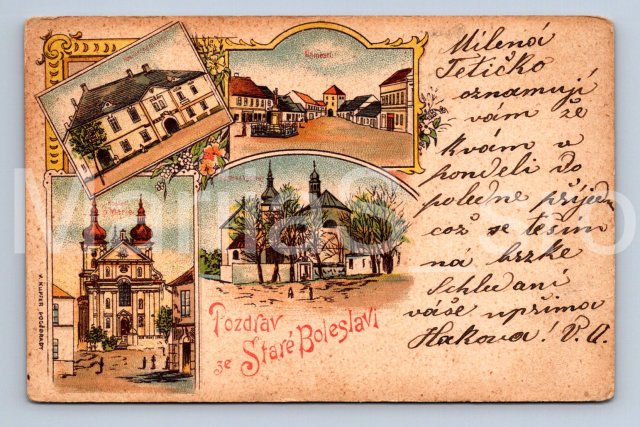 Náměstí
V. KUPFER PODĚBRADY
Pozdrav
ze Staré Boleslavi
Milená
Tetičko
oznamují
vám že
k vám v
pondeli do
poledne přijedu
což se těším
na brzke
Schledaní
váše upřima
Hakova! V. A.